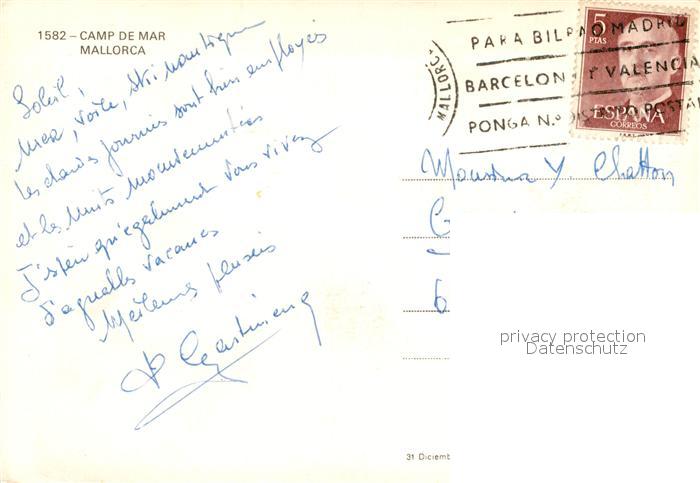 1582 – CAMP DE MAR
MALLORCA
Soleil,
Mer, voile, ski nautique
les chaudes journées sont bien employés
et les nuits mouvementées
J'espère qu'également vous vivez
d'agréables vacances
Meilleures pensées
MALLORCA
PARA BILBAO MADRID
BARCELONA Y VALENCIA
PONGA N.º DISTRITO POSTAL
5
PTAS
ESPAÑA
CORREOS
Monsieur Y. Chatton
privacy protection
Datenschutz
31 Diciemb